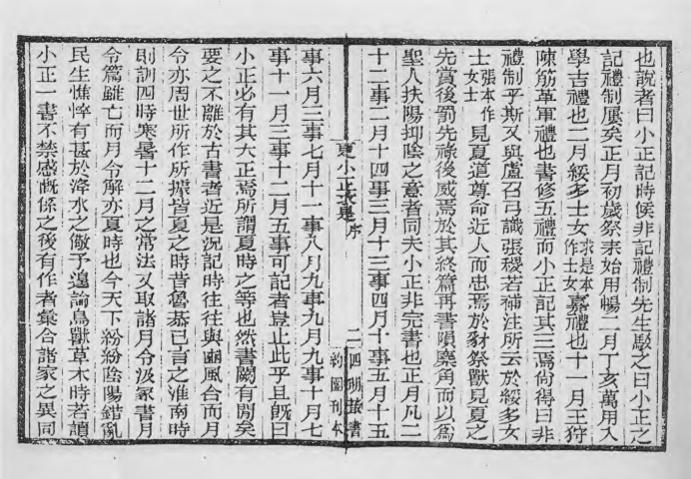 也說者曰小正記時候非記禮制先生駁之曰小正之
記禮制屢矣正月初歲祭耒始用暢二月丁亥萬用入
學吉禮也二月綏多士女求是本作士女嘉禮也十一月王狩
陳筋革軍禮也書修五禮而小正記其三焉尚得曰非
禮制乎斯又與盧召弓識張稷若補注所云於綏多女
士張本作女士見夏道尊命近人而忠焉於豺祭獸見夏之
先賞後罰先祿後威焉於其終篇再書隕麋角而以爲
聖人扶陽抑陰之意者同夫小正非完書也正月凡二
十二事二月十四事三月十三事四月十事五月十五
夏小正求是 序 二 四明叢書
約園刊本
事六月三事七月十一事八月九事九月九事十月七
事十一月三事十二月五事可記者豈止此乎且旣曰
小正必有其大正焉所謂夏時之等也然書闕有閒矣
要之不離於古書者近是況記時往往與豳風合而月
令亦周世所作所據皆夏之時昔魯恭已言之淮南時
則訓四時寒暑十二月之常法又取諸月令汲冢書月
令篇雖亡而月令解亦夏時也今天下紛紛陰陽錯亂
民生憔悴有甚於洚水之儆予遑論鳥獸草木時若讀
小正一書不禁感慨係之後有作者彙合諸家之異同